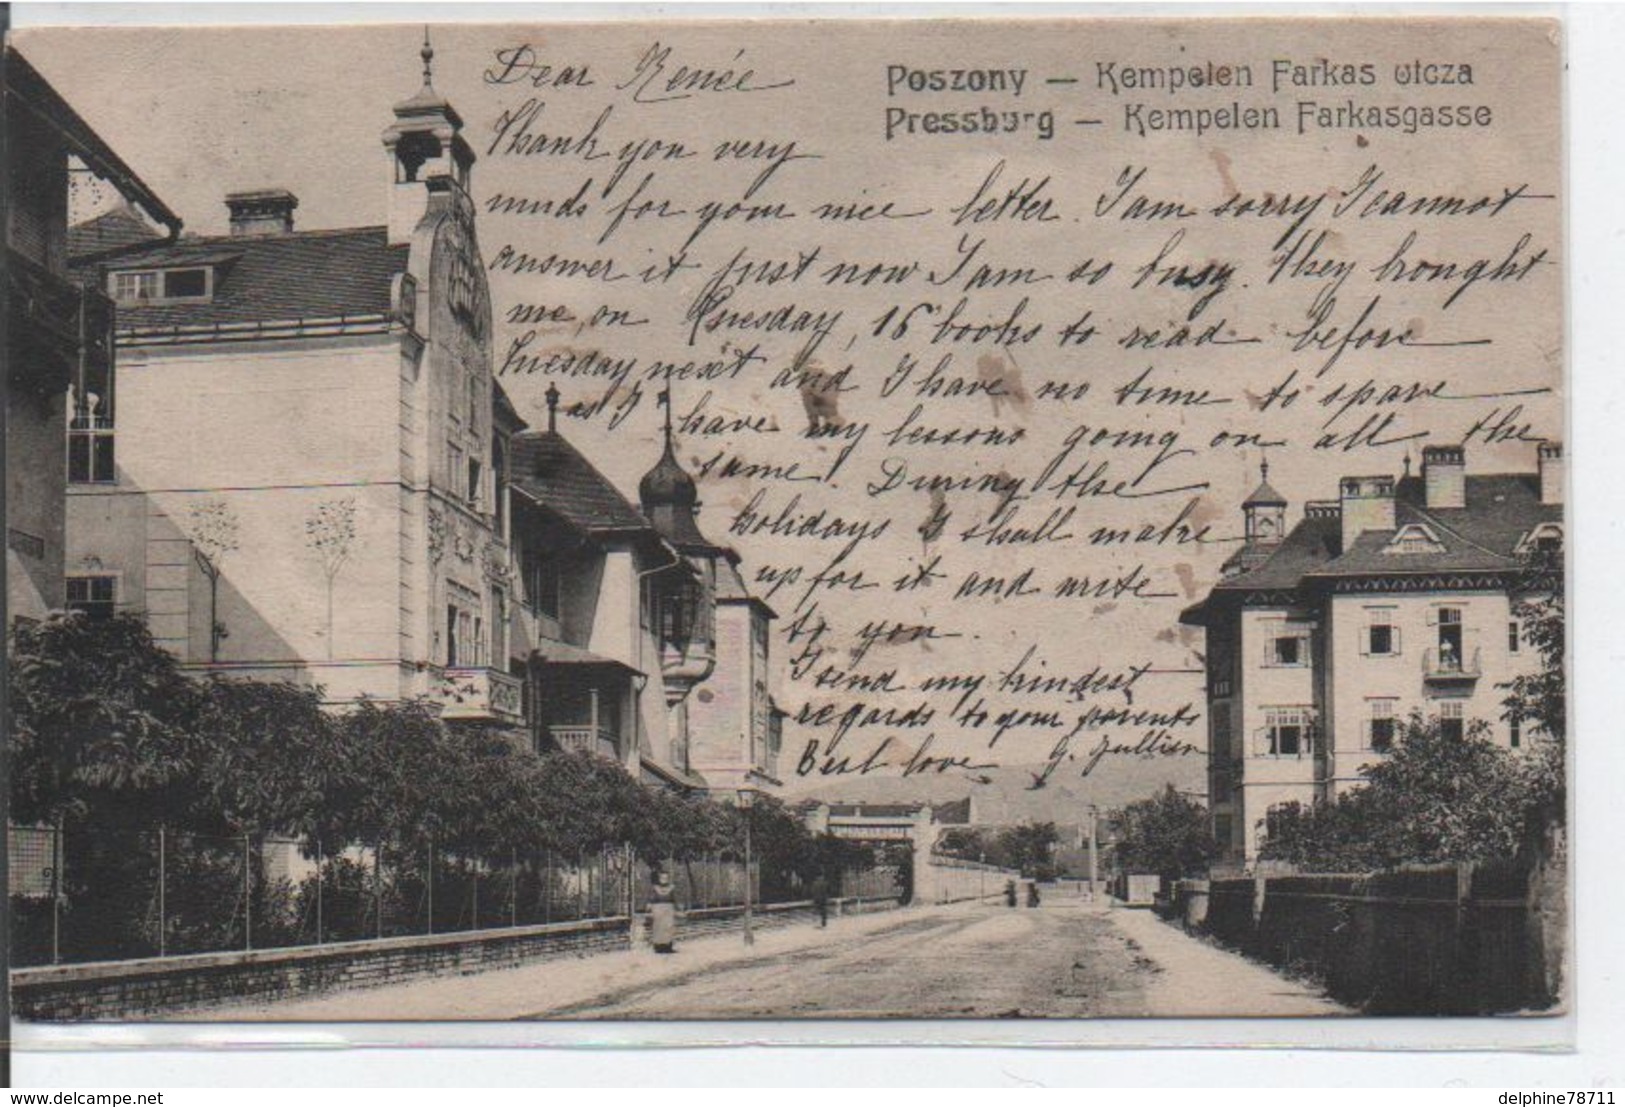 Poszony – Kempelen Farkas utcza
Pressburg – Kempelen Farkasgasse
Dear Renée
Thank you very
much for your nice letter. I am sorry I cannot
answer it just now I am so busy. They brought
me, on Tuesday, 16 books to read before
Tuesday next and I have no time to spare
as I have my lessons going on all the
same. During the
holidays I shall make
up for it and write
to you.
I send my kindest
regards to your parents
Best love G.
www.delcampe.net
delphine78711